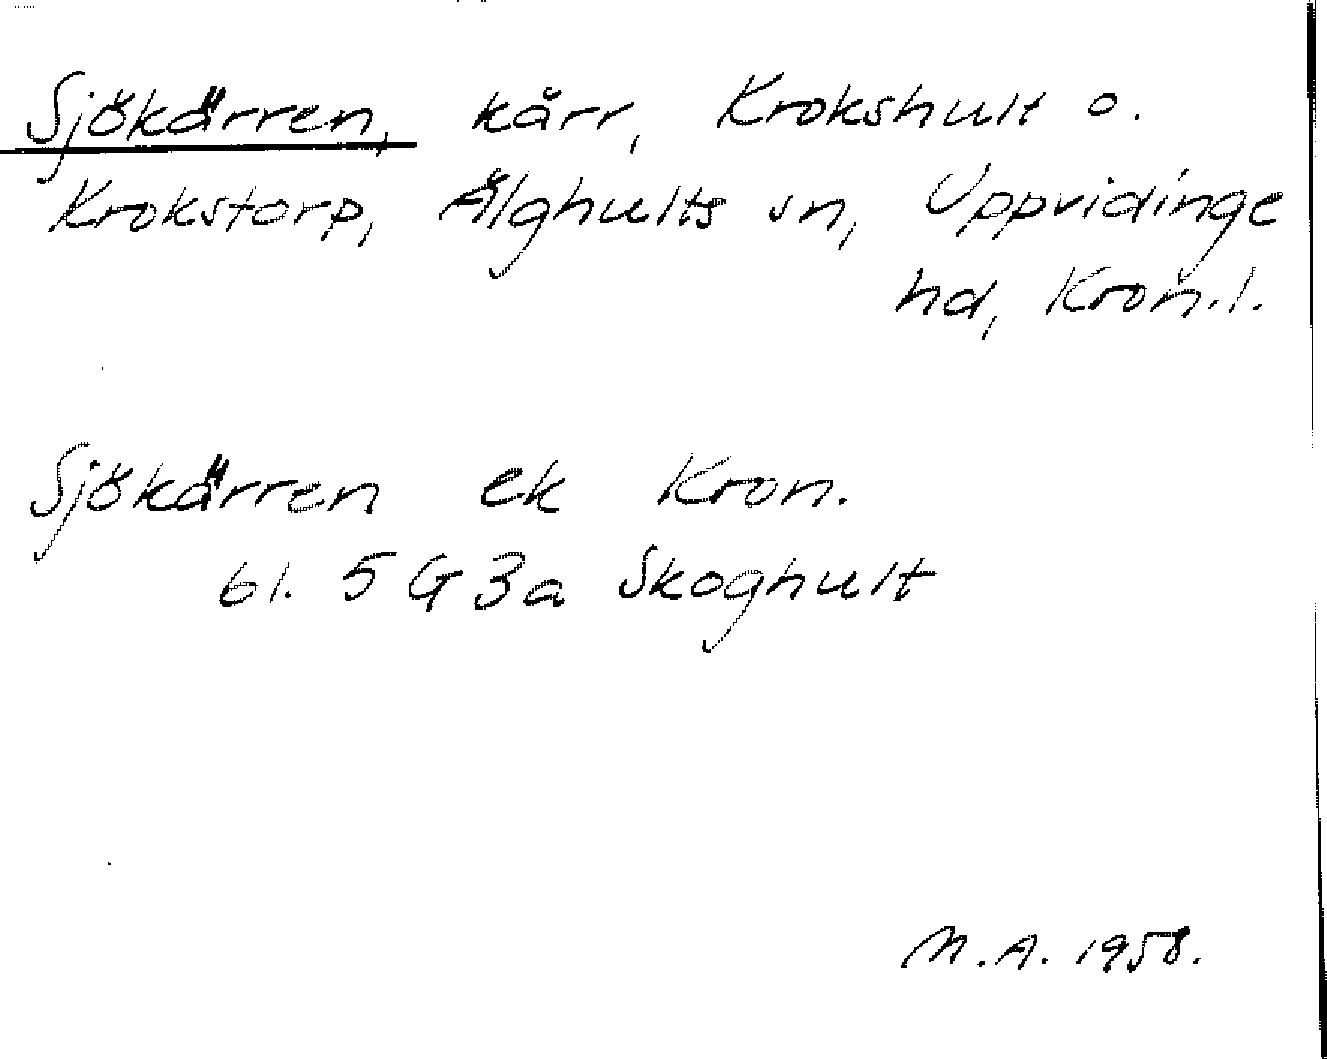 Sjökärren, kärr, Krokshult o.
Krokstorp, Älghults sn, Uppvidinge
hd, Kron.l.
Sjökärren ek Kron.
bl. 5 G 3a Skoghult
M.A. 1958.